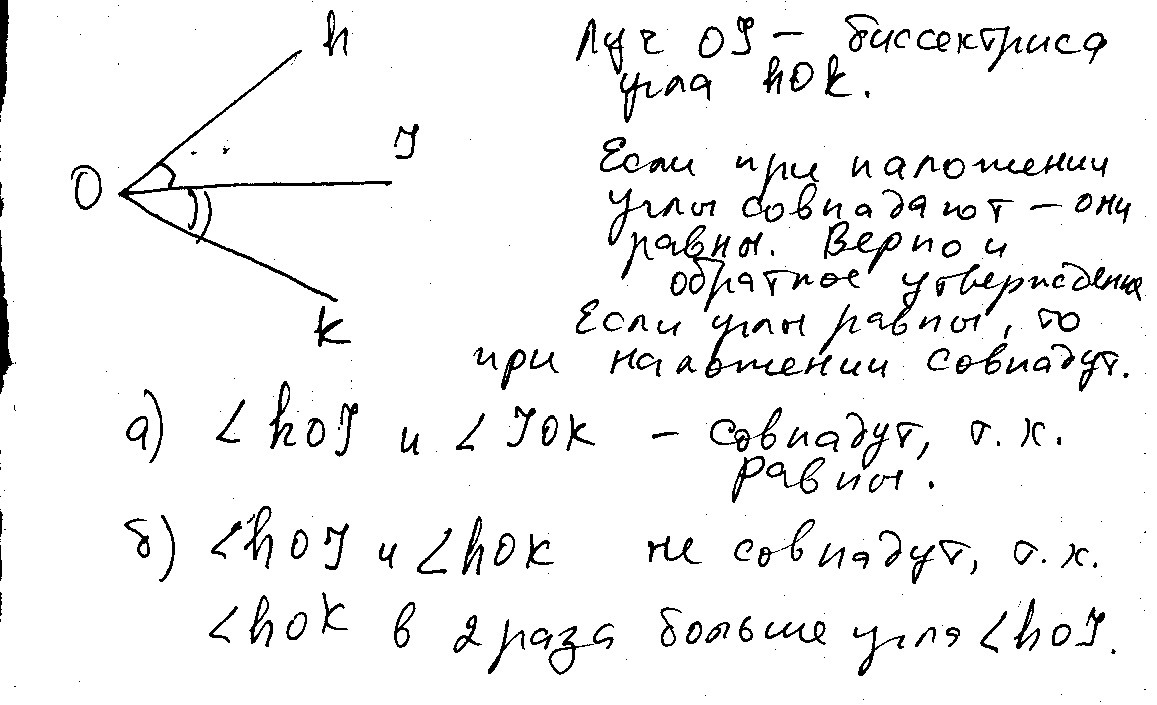 h
Луч OJ — биссектриса
угла hOk.
J
O
k
Если при наложении
углы совпадают — они
равны. Верно и
обратное утверждение
Если углы равны, то
при наложении совпадут.
а) ∠hOJ и ∠JOk — совпадут, т.к.
равны.
б) ∠hOJ и ∠hOk не совпадут, т.к.
∠hOk в 2 раза больше угла ∠hOJ.